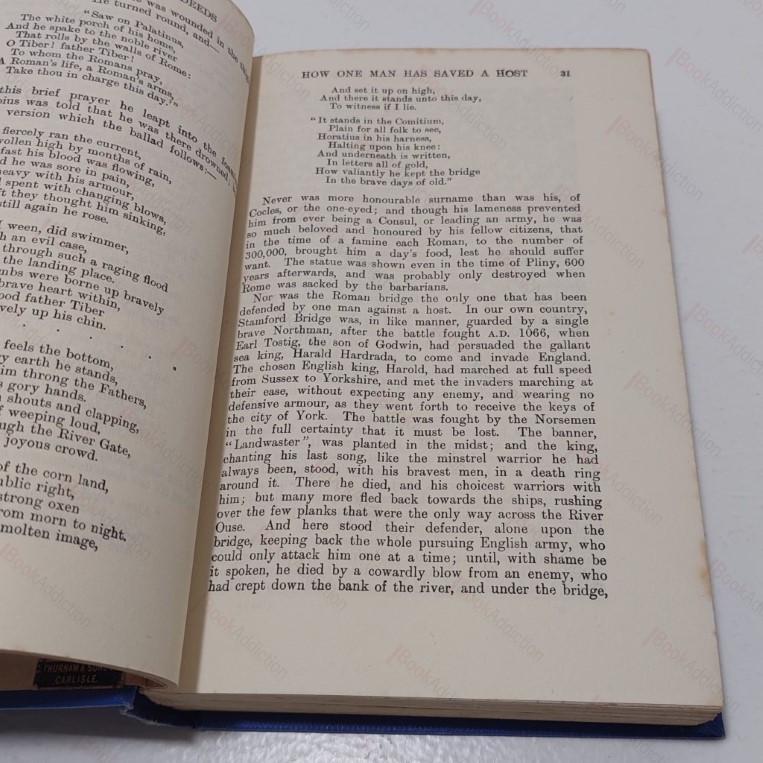 DEEDS
was wounded in the
He turned round, and—
"Saw on Palatinus,
The white porch of his home,
And he spake to the noble river
That rolls by the walls of Rome:
O Tiber! father Tiber!
To whom the Romans pray,
A Roman's life, a Roman's arms,
Take thou in charge this day."
this brief prayer he leapt into the
was told that he was there drowned,
version which the ballad follows:—
fiercely ran the current,
high by months of rain,
fast his blood was flowing,
he was sore in pain,
heavy with his armour,
spent with changing blows,
they thought him sinking,
still again he rose.
I ween, did swimmer,
an evil case,
through such a raging flood
the landing place.
were borne up bravely
brave heart within,
good father Tiber
bravely up his chin.
feels the bottom,
earth he stands,
him throng the Fathers,
gory hands.
shouts and clapping,
weeping loud,
the River Gate,
joyous crowd.
of the corn land,
public right,
strong oxen
from morn to night.
molten image,
THURNAM & SONS
CARLISLE.
HOW ONE MAN HAS SAVED A HOST 31
And set it up on high,
And there it stands unto this day,
To witness if I lie.
"It stands in the Comitium,
Plain for all folk to see,
Horatius in his harness,
Halting upon his knee:
And underneath is written,
In letters all of gold,
How valiantly he kept the bridge
In the brave days of old."
Never was more honourable surname than was his, of
Cocles, or the one-eyed; and though his lameness prevented
him from ever being a Consul, or leading an army, he was
so much beloved and honoured by his fellow citizens, that
in the time of a famine each Roman, to the number of
300,000, brought him a day's food, lest he should suffer
want. The statue was shown even in the time of Pliny, 600
years afterwards, and was probably only destroyed when
Rome was sacked by the barbarians.
Nor was the Roman bridge the only one that has been
defended by one man against a host. In our own country,
Stamford Bridge was, in like manner, guarded by a single
brave Northman, after the battle fought A.D. 1066, when
Earl Tostig, the son of Godwin, had persuaded the gallant
sea king, Harald Hardrada, to come and invade England.
The chosen English king, Harold, had marched at full speed
from Sussex to Yorkshire, and met the invaders marching at
their ease, without expecting any enemy, and wearing no
defensive armour, as they went forth to receive the keys of
the city of York. The battle was fought by the Norsemen
in the full certainty that it must be lost. The banner,
"Landwaster", was planted in the midst; and the king,
chanting his last song, like the minstrel warrior he had
always been, stood, with his bravest men, in a death ring
around it. There he died, and his choicest warriors with
him; but many more fled back towards the ships, rushing
over the few planks that were the only way across the River
Ouse. And here stood their defender, alone upon the
bridge, keeping back the whole pursuing English army, who
could only attack him one at a time; until, with shame be
it spoken, he died by a cowardly blow from an enemy, who
had crept down the bank of the river, and under the bridge,
BookAddiction